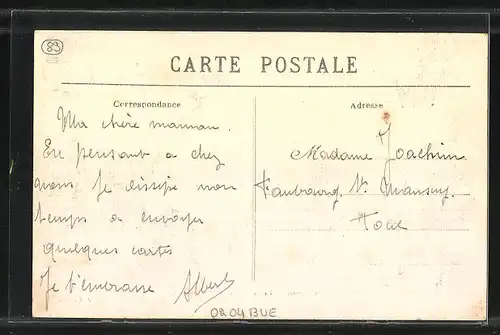 83
CARTE POSTALE
Correspondance
Adresse
Ma chère maman.
En pensant a chez
nous je dissipe mon
temps a envoyer
quelques cartes
Je t'embrasse Albert
Madame Joachim
Faubourg St Mansuy.
Toul
OROYBUE